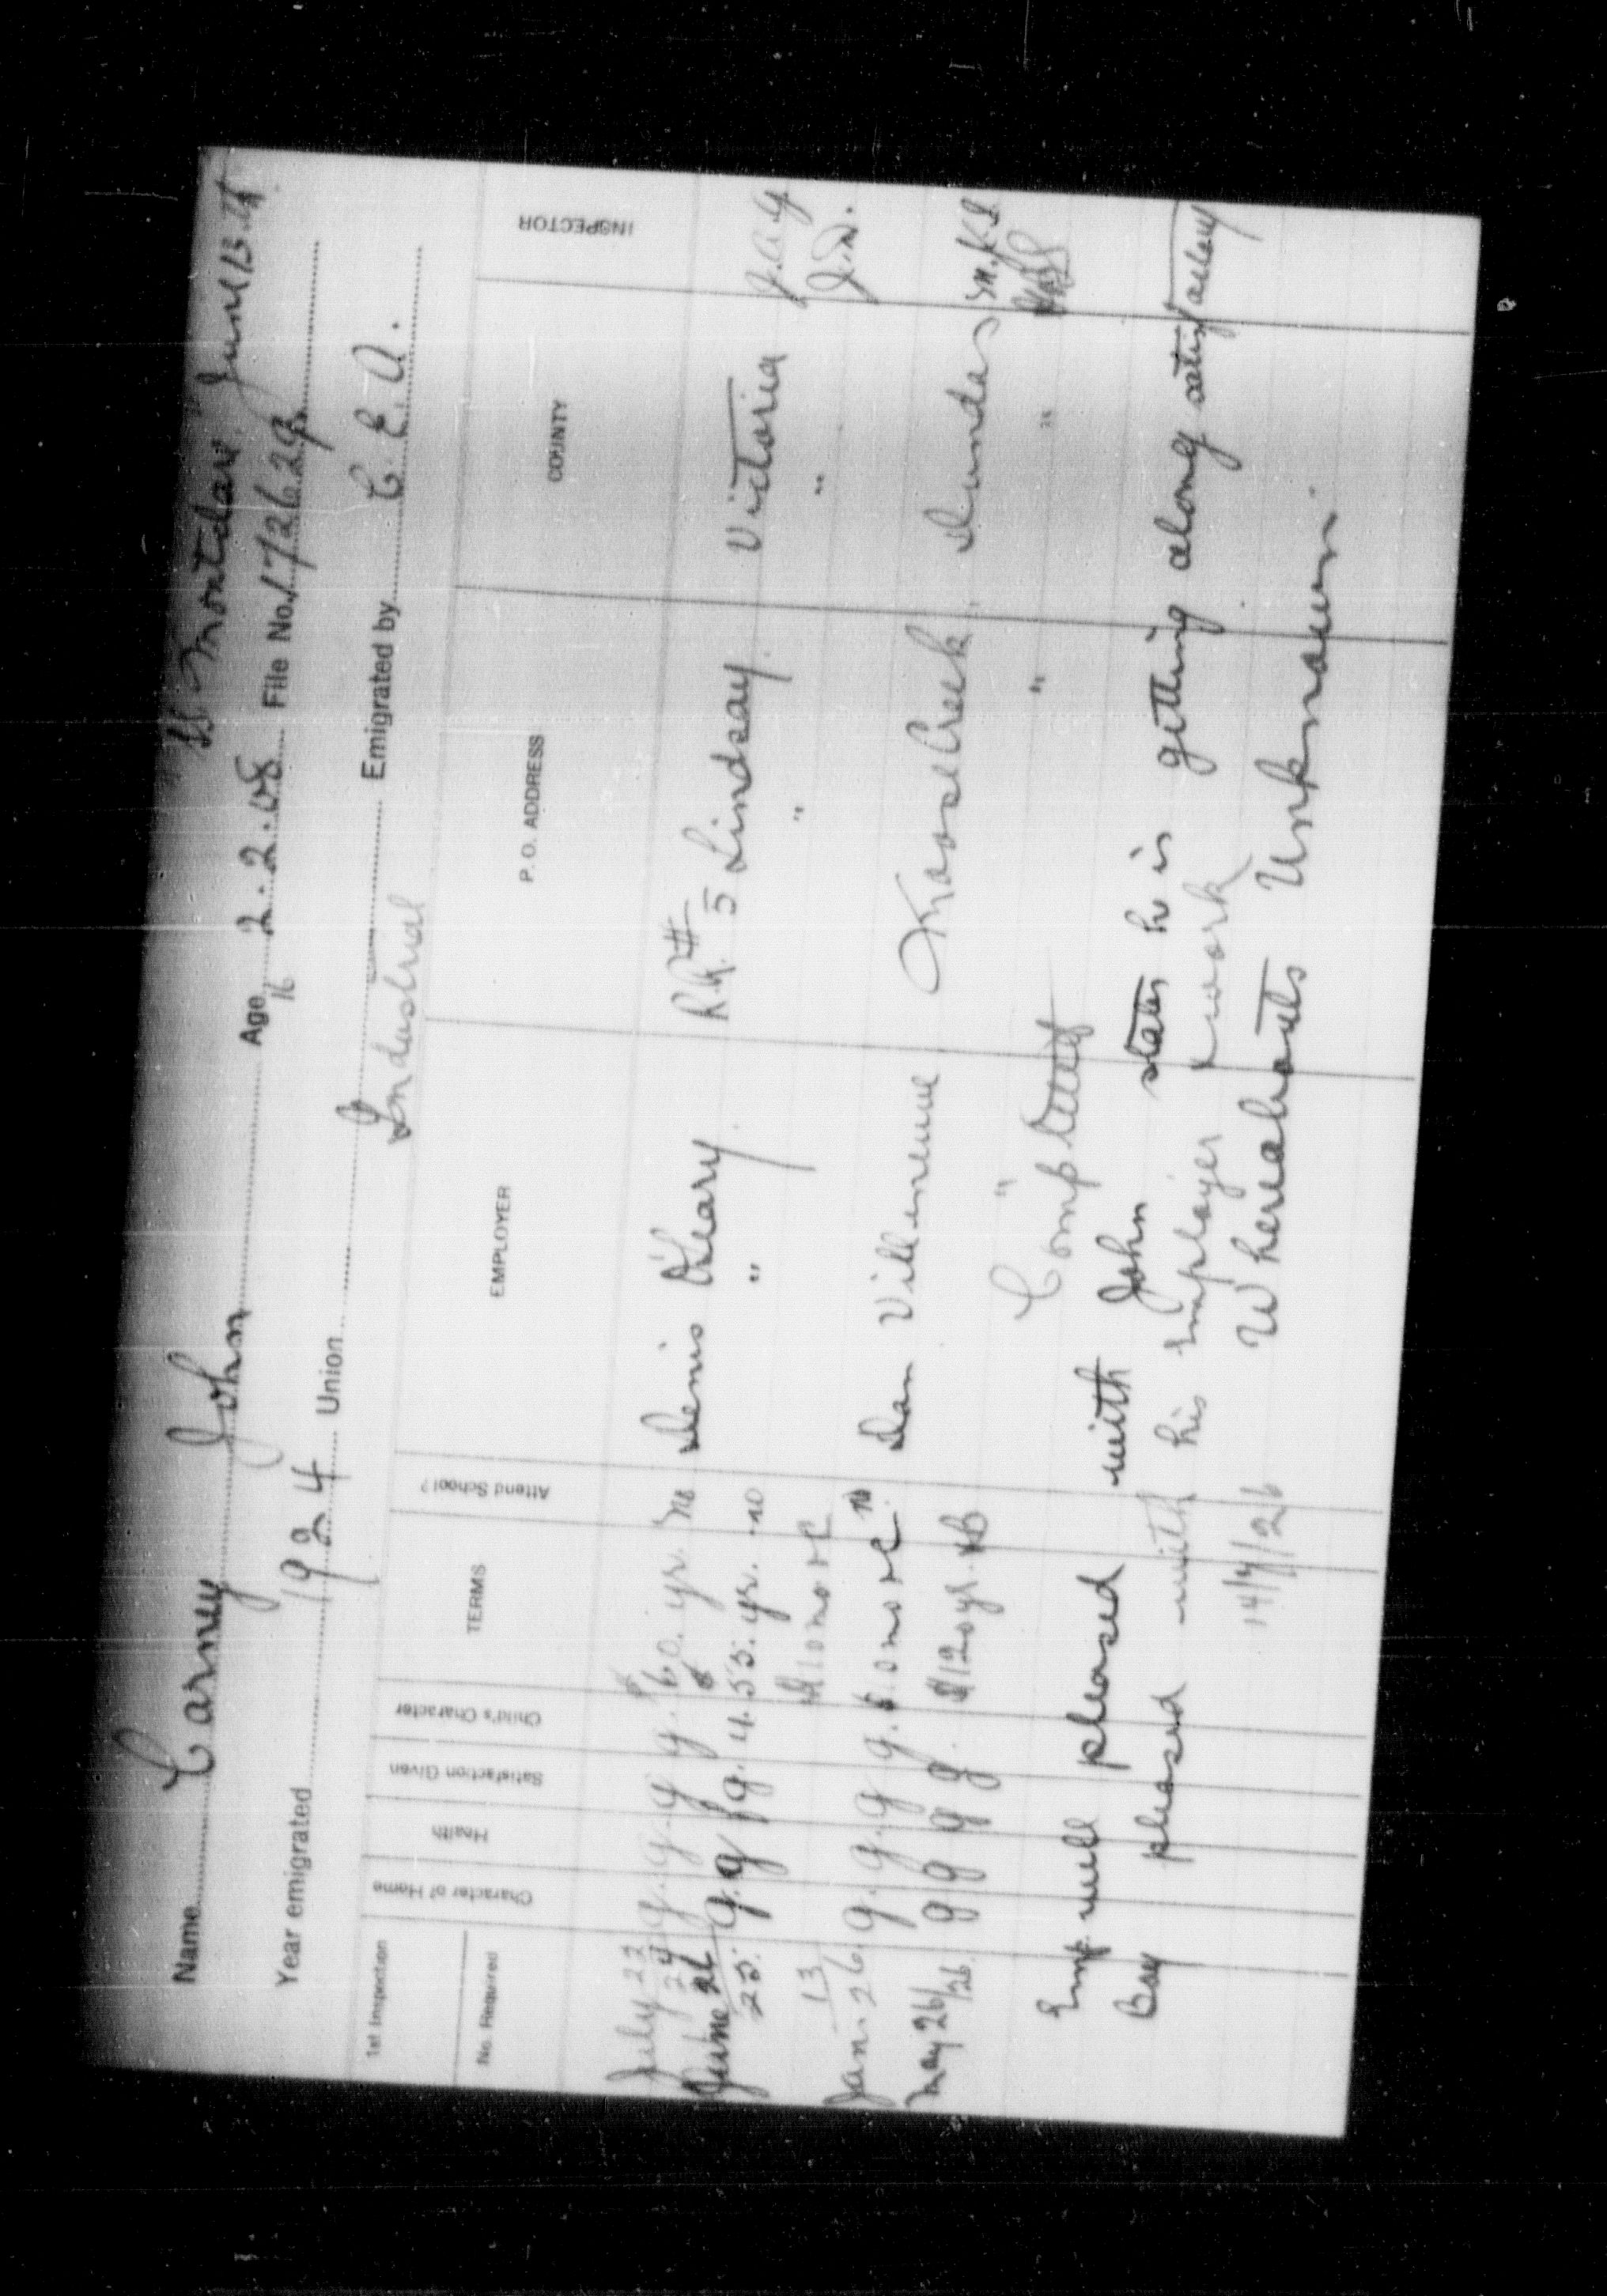 SS Montclare June 13.24
Name Carney John Age 2.2.08 File No. 172629
16
Year emigrated 1924 Union Emigrated by C.E.A.
Industrial
1st Inspection
No. Required
Character of Home Health Satisfaction Given Child's Character TERMS Attend School? EMPLOYER P. O. ADDRESS COUNTY INSPECTOR
July 22/24 g. g. g g. $60. yr. No Denis O'Leary R.R.# 5 Lindsay. Victoria J.A.G
June 26/25. g. g g. 4. 55. yr. no " " " J.W.
$10 mo & C
Jan. 13/26. g. g. g g. 10 mo & C no Dan Villeneuve Moose Creek Dundas
May 26/26. g g g g. $120 yr. & B " " "
Completed
Emp well pleased with John states he is getting along satisfactory
Boy pleased with his employer & work
14/7/26 Whereabouts Unknown.